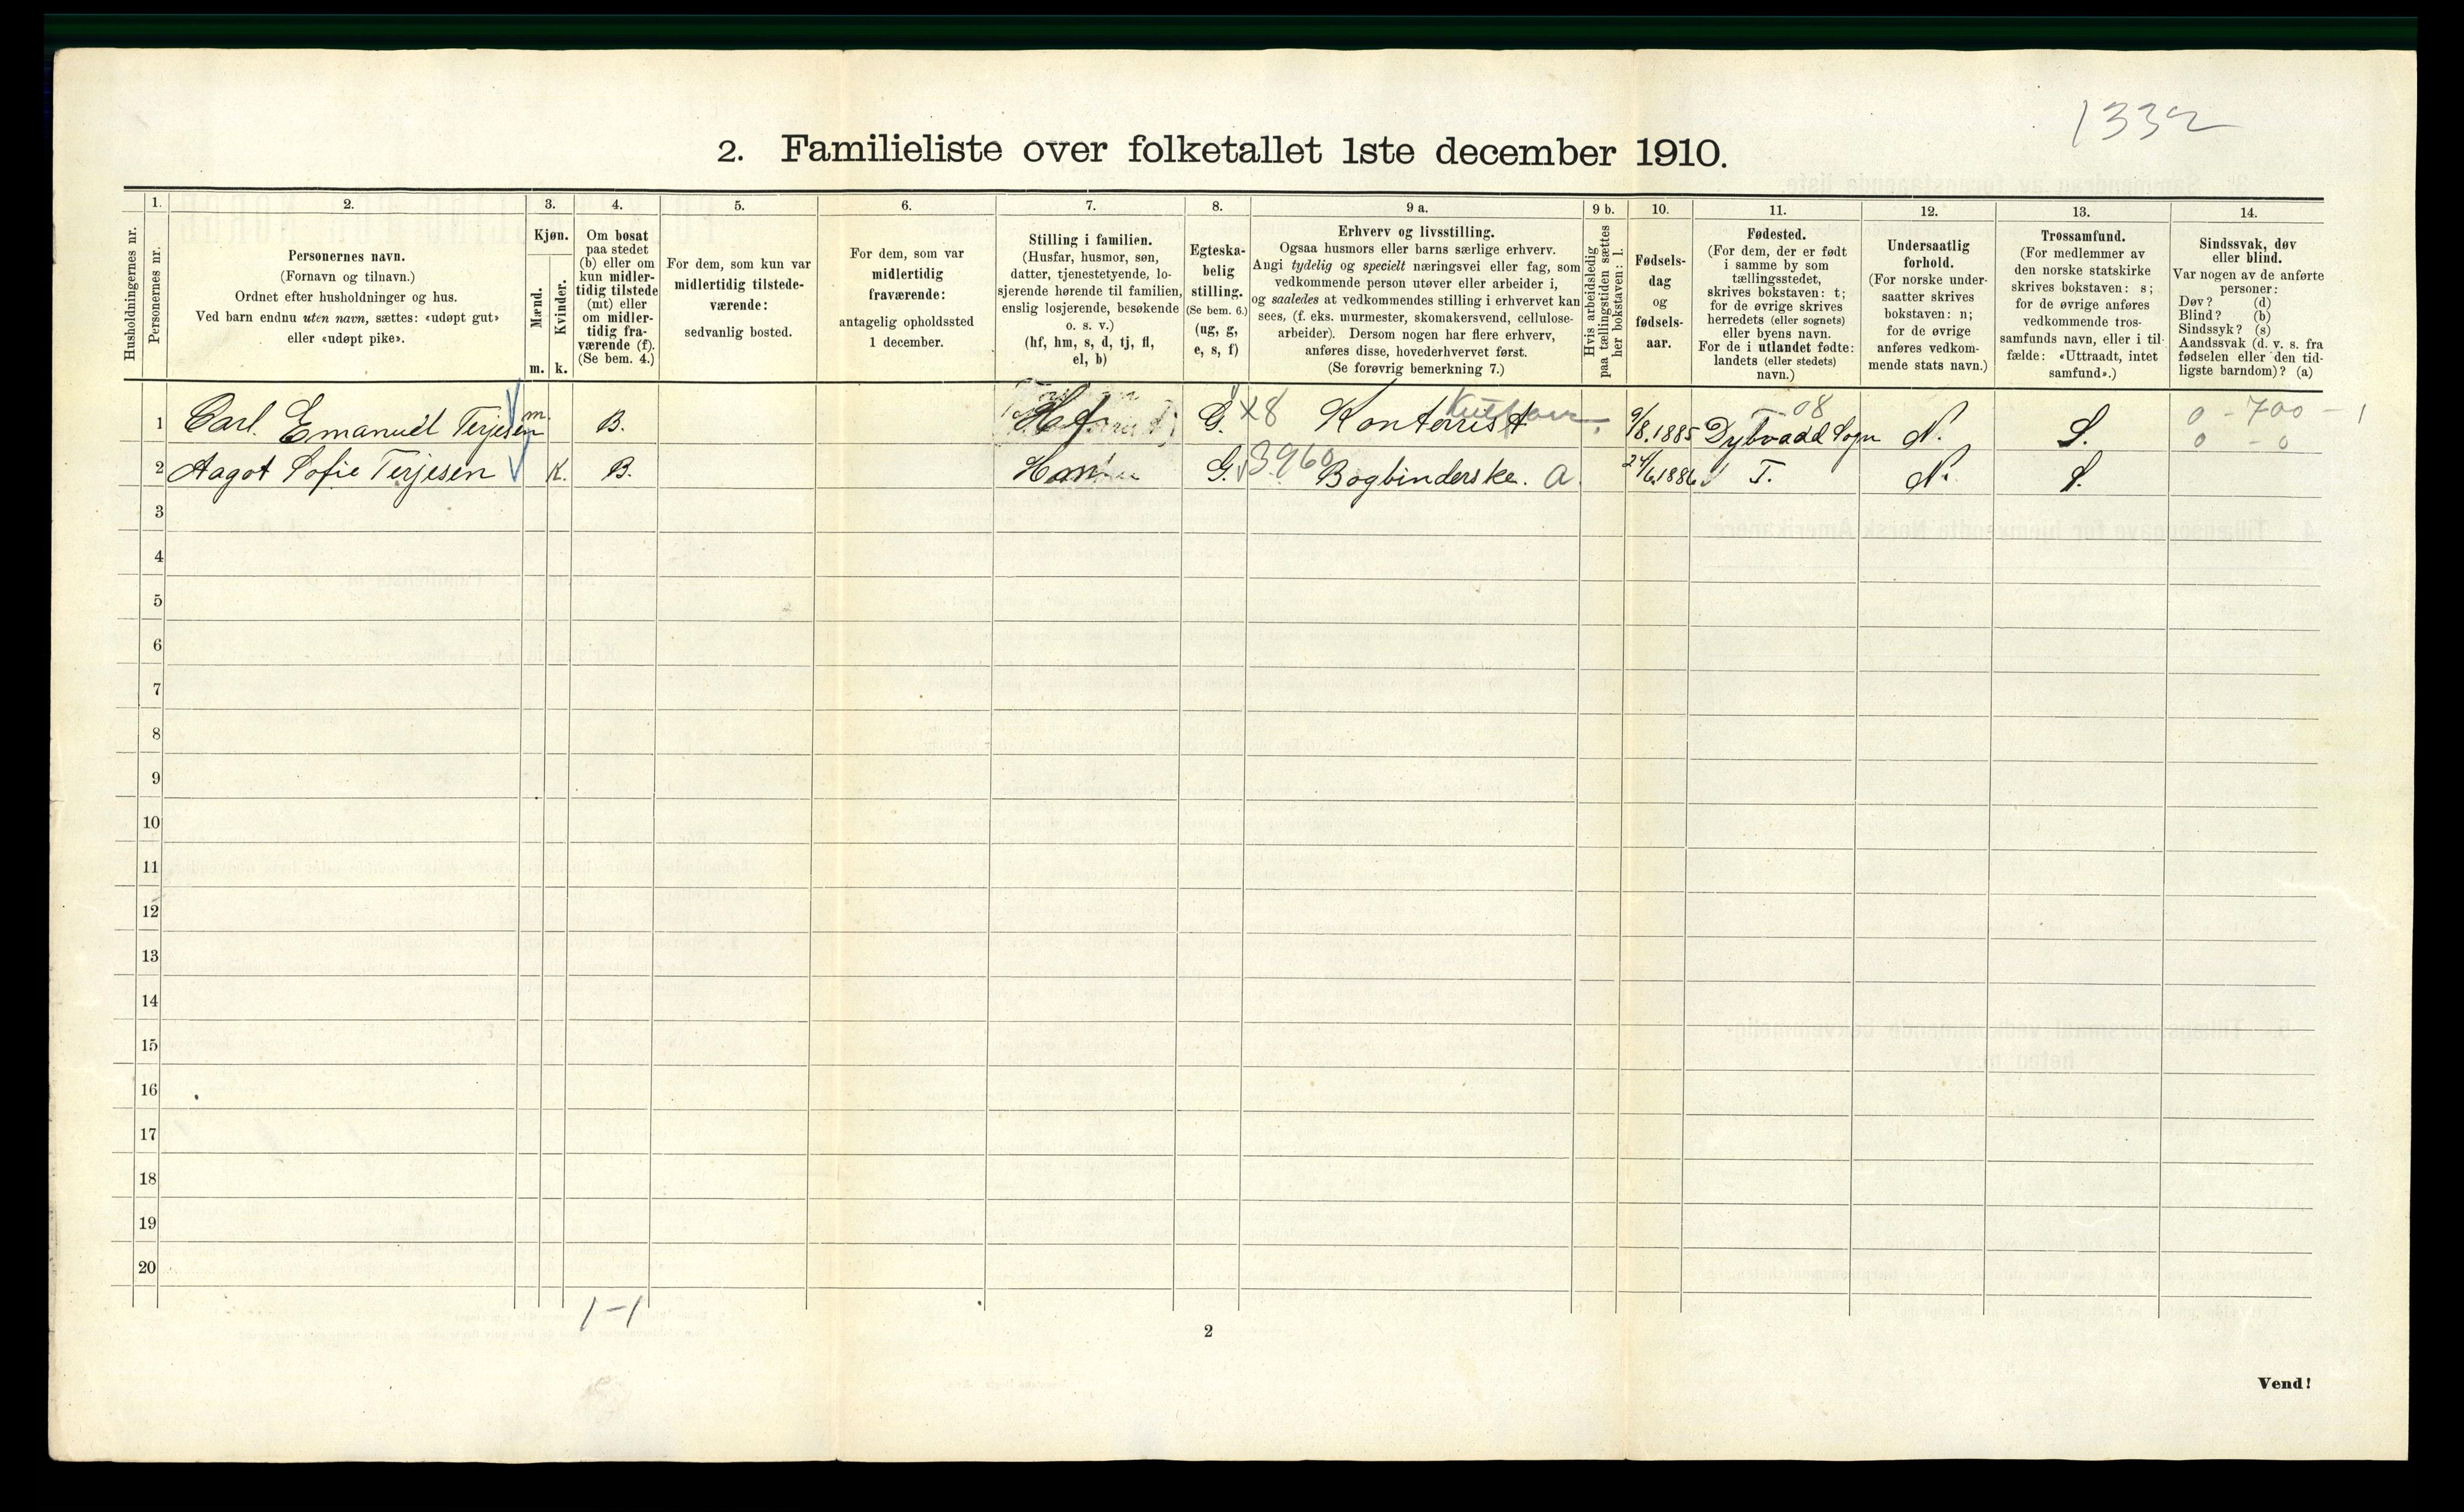 1332
2. Familieliste over folketallet 1ste december 1910.
Husholdningernes nr.
1.
Personernes nr.
2.
Personernes navn.
(Fornavn og tilnavn.)
Ordnet efter husholdninger og hus.
Ved barn endnu uten navn, sættes: «udøpt gut»
eller «udøpt pike».
3.
Kjøn.
Mænd.
Kvinder.
m. k.
4.
Om bosat
paa stedet
(b) eller om
kun midler-
tidig tilstede
(mt) eller
om midler-
tidig fra-
værende (f).
(Se bem. 4.)
5.
For dem, som kun var
midlertidig tilstede-
værende:
sedvanlig bosted.
6.
For dem, som var
midlertidig
fraværende:
antagelig opholdssted
1 december.
7.
Stilling i familien.
(Husfar, husmor, søn,
datter, tjenestetyende, lo-
sjerende hørende til familien,
enslig losjerende, besøkende
o. s. v.)
(hf, hm, s, d, tj, fl,
el, b)
8.
Egteska-
belig
stilling.
(Se bem. 6.)
(ug, g,
e, s, f)
9 a.
Erhverv og livsstilling.
Ogsaa husmors eller barns særlige erhverv.
Angi tydelig og specielt næringsvei eller fag, som
vedkommende person utøver eller arbeider i,
og saaledes at vedkommendes stilling i erhvervet kan
sees, (f. eks. murmester, skomakersvend, cellulose-
arbeider). Dersom nogen har flere erhverv,
anføres disse, hovederhvervet først.
(Se forøvrig bemerkning 7.)
9 b.
Hvis arbeidsledig
paa tællingstiden sættes
her bokstaven: l.
10.
Fødsels-
dag
og
fødsels-
aar.
11.
Fødested.
(For dem, der er født
i samme by som
tællingsstedet,
skrives bokstaven: t;
for de øvrige skrives
herredets (eller sognets)
eller byens navn.
For de i utlandet fødte:
landets (eller stedets)
navn.)
12.
Undersaatlig
forhold.
(For norske under-
saatter skrives
bokstaven: n;
for de øvrige
anføres vedkom-
mende stats navn.)
13.
Trossamfund.
(For medlemmer av
den norske statskirke
skrives bokstaven: s;
for de øvrige anføres
vedkommende tros-
samfunds navn, eller i til-
fælde: «Uttraadt, intet
samfund».)
14.
Sindssvak, døv
eller blind.
Var nogen av de anførte
personer:
Døv? (d)
Blind? (b)
Sindssyk? (s)
Aandssvak (d. v. s. fra
fødselen eller den tid-
ligste barndom)? (a)
08 0 - 700 - 1
1 Carl. Emanuel Terjesen m. B. Hf. G. x8 Kontorist 9/8.1885 Dybvaad Sogn N. S. 0 - 0
2 Aagot Sofie Terjesen K. B. Hm G. 3960 Bogbinderske. a. 24/6.1886 T. N. S.
3
4
5
6
7
8
9
10
11
12
13
14
15
16
17
18
19
20
1-1
2
Vend!